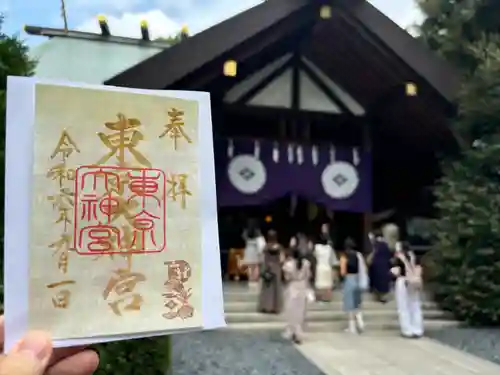 奉拝
東京大神宮
東京
大神宮
令和元年九月一日